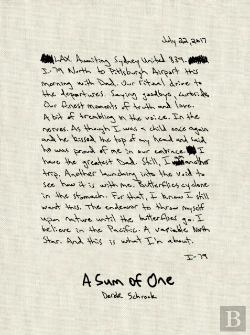 July 22, 2017
LAX. Awaiting Sydney United 839.
I-79 North to Pittsburgh Airport this
morning with Dad. Our ritual drive to
the departures. Saying goodbye, curbside.
Our finest moments of truth and love.
A bit of trembling in the voice. In the
nerves. As though I was a child once again
and he kissed the top of my head and said
he was proud of me in our embrace. I
have the greatest Dad. Still, I another
trip. Another launching into the void to
see how it is with me. Butterflies cyclone
in the stomach. For that, I know I still
want this. The endeavor to throw myself
upon nature until the butterflies go. I
believe in the Pacific. A variable North
Star. And this is what I'm about.
I-79
A Sum of One
Derek Schrock
B